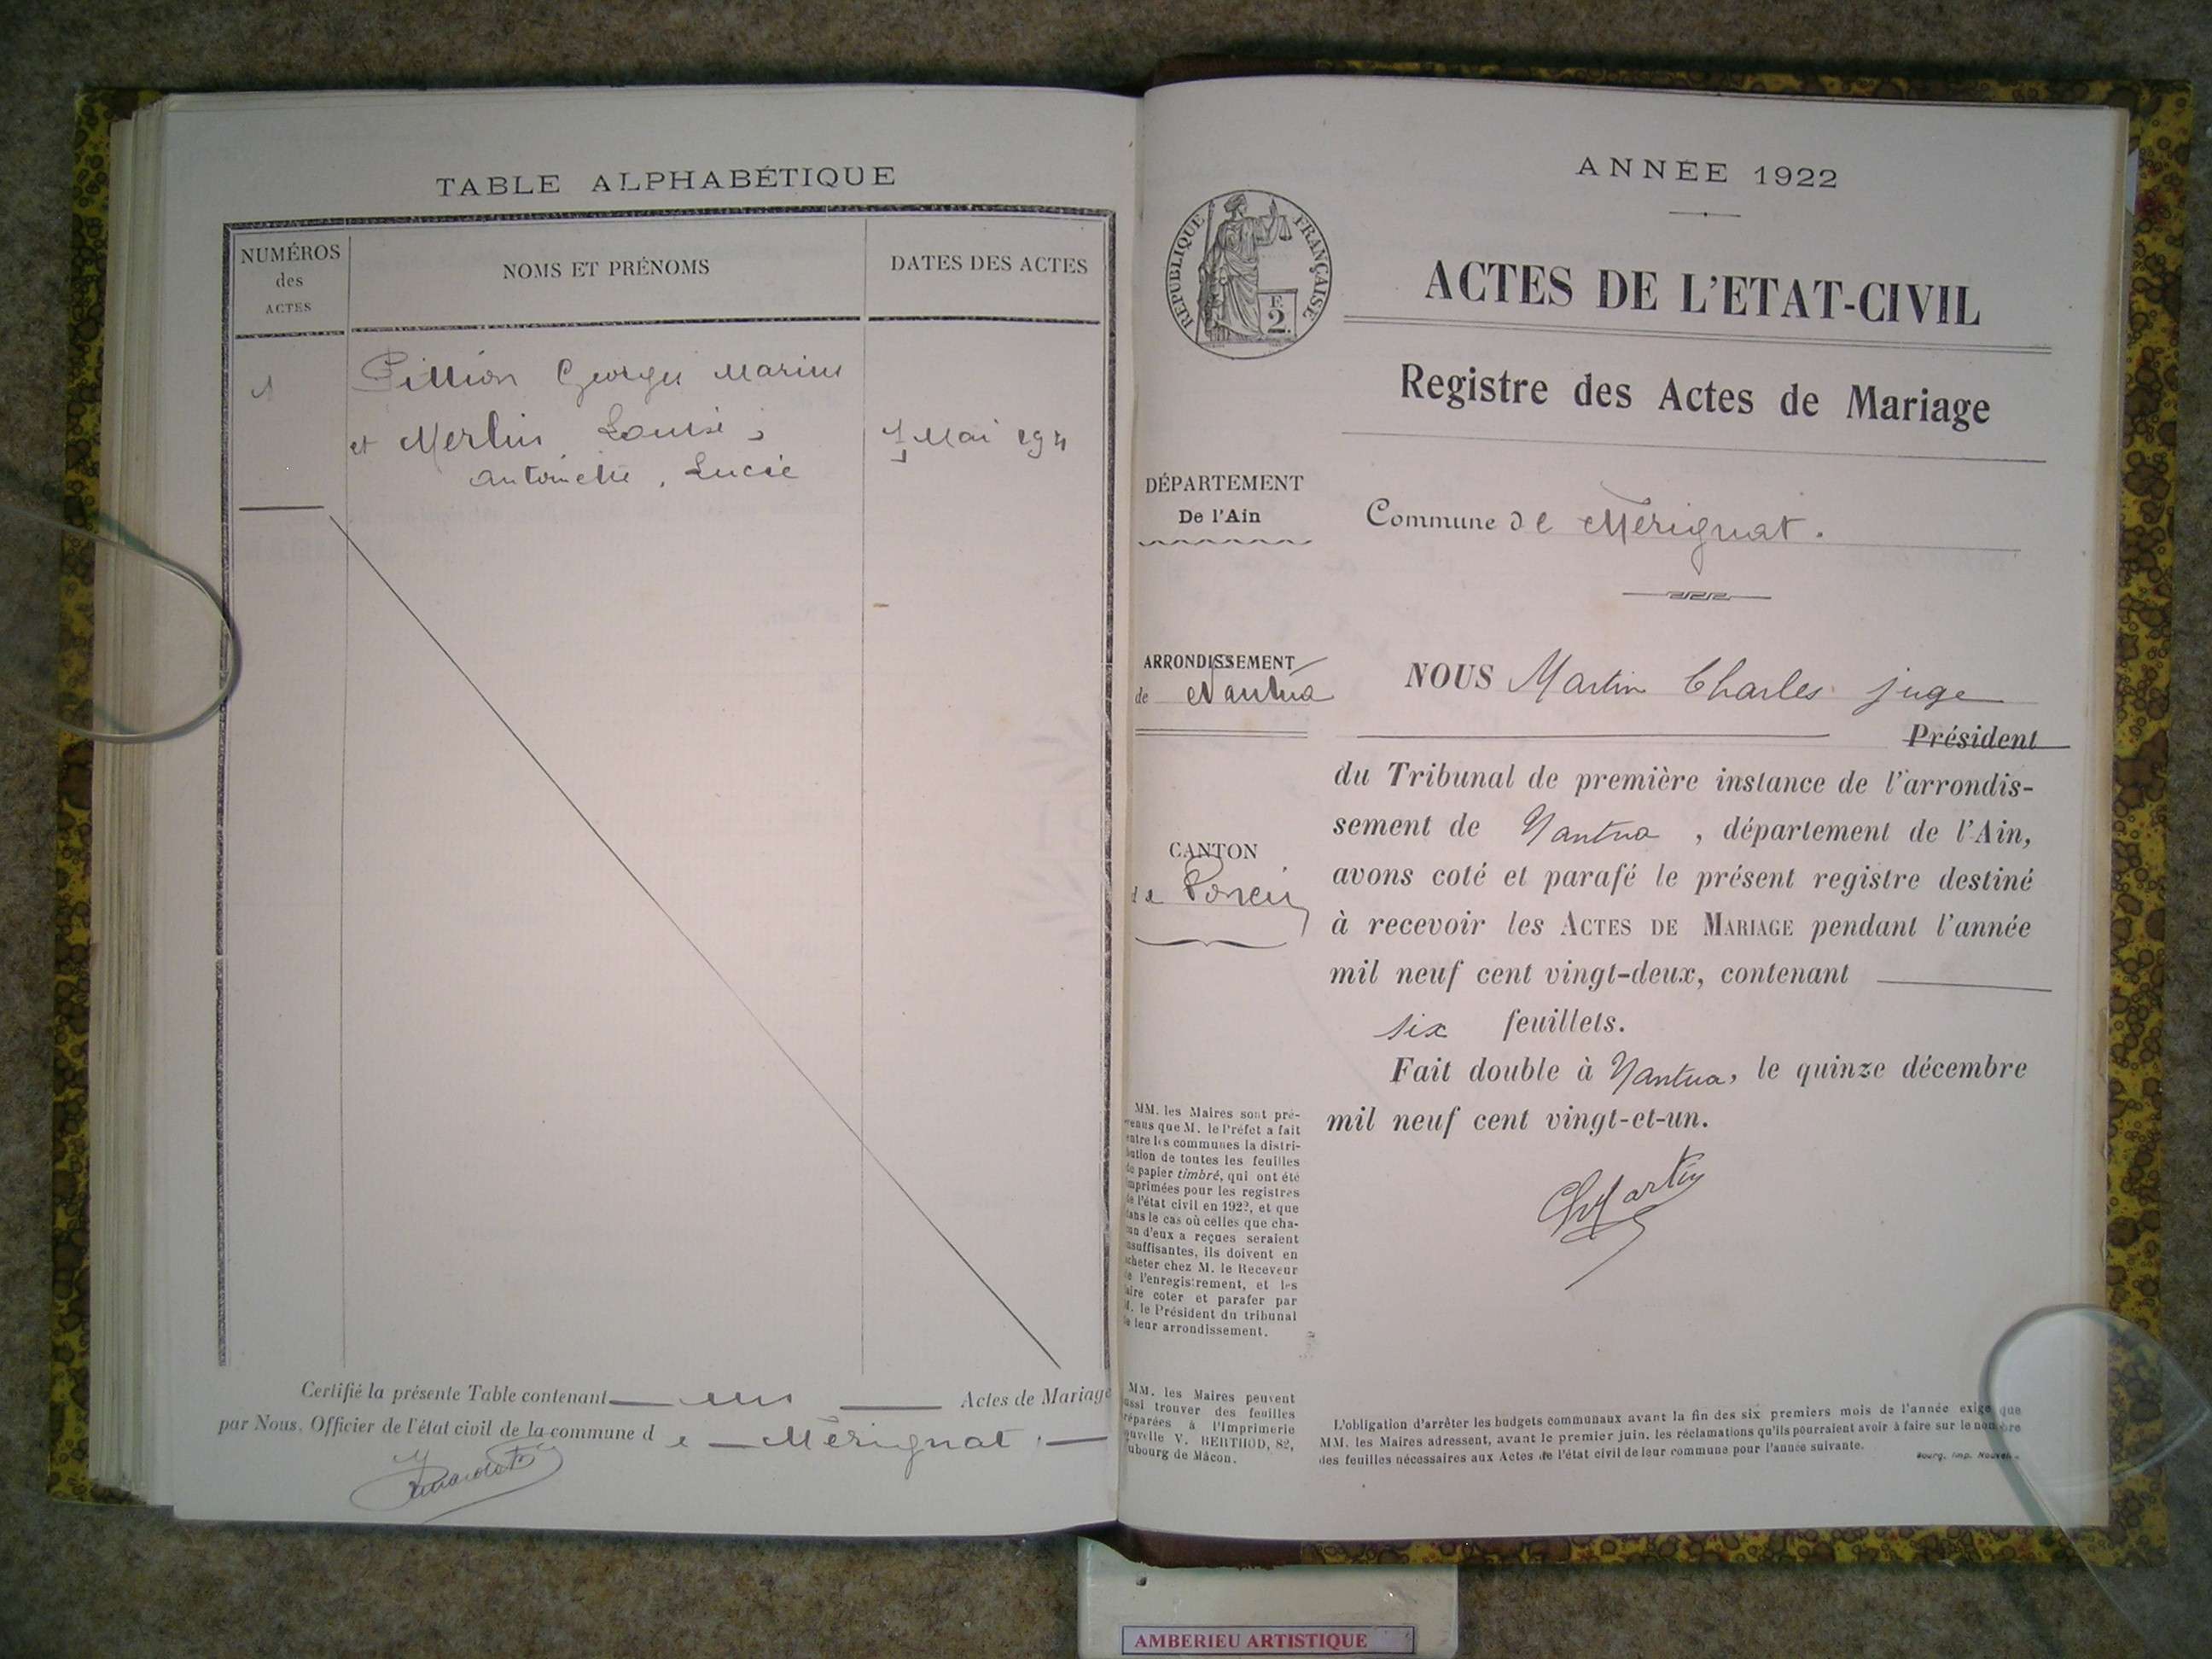 TABLE ALPHABÉTIQUE
NUMÉROS
des
ACTES
NOMS ET PRÉNOMS
DATES DES ACTES
1
Georges Marius
et Merlin Louise,
Antoinette, Lucie
Mai
Certifié la présente Table contenant un Actes de Mariage
par Nous, Officier de l'état civil de la commune de Mérignat.
ANNÉE 1922
RÉPUBLIQUE FRANÇAISE
F.
2.
ACTES DE L'ETAT-CIVIL
Registre des Actes de Mariage
DÉPARTEMENT
De l'Ain
Commune de Mérignat.
ARRONDISSEMENT
de Nantua
CANTON
de Poncin
NOUS Martin Charles juge
Président
du Tribunal de première instance de l'arrondis-
sement de Nantua, département de l'Ain,
avons coté et parafé le présent registre destiné
à recevoir les ACTES DE MARIAGE pendant l'année
mil neuf cent vingt-deux, contenant
six feuillets.
Fait double à Nantua, le quinze décembre
mil neuf cent vingt-et-un.
ChMartin
MM. les Maires sont pré-
venus que M. le Préfet a fait
entre les communes la distri-
bution de toutes les feuilles
de papier timbré, qui ont été
imprimées pour les registres
de l'état civil en 1922, et que
dans le cas où celles que cha-
cun d'eux a reçues seraient
insuffisantes, ils doivent en
acheter chez M. le Receveur
de l'enregistrement, et les
faire coter et parafer par
M. le Président du tribunal
de leur arrondissement.
MM. les Maires peuvent
aussi trouver des feuilles
préparées à l'Imprimerie
Nouvelle V. BERTHOD, 82,
faubourg de Mâcon.
L'obligation d'arrêter les budgets communaux avant la fin des six premiers mois de l'année exige que
MM. les Maires adressent, avant le premier juin, les réclamations qu'ils pourraient avoir à faire sur le nombre
des feuilles nécessaires aux Actes de l'état civil de leur commune pour l'année suivante.
Bourg, Imp. Nouvelle
AMBERIEU ARTISTIQUE